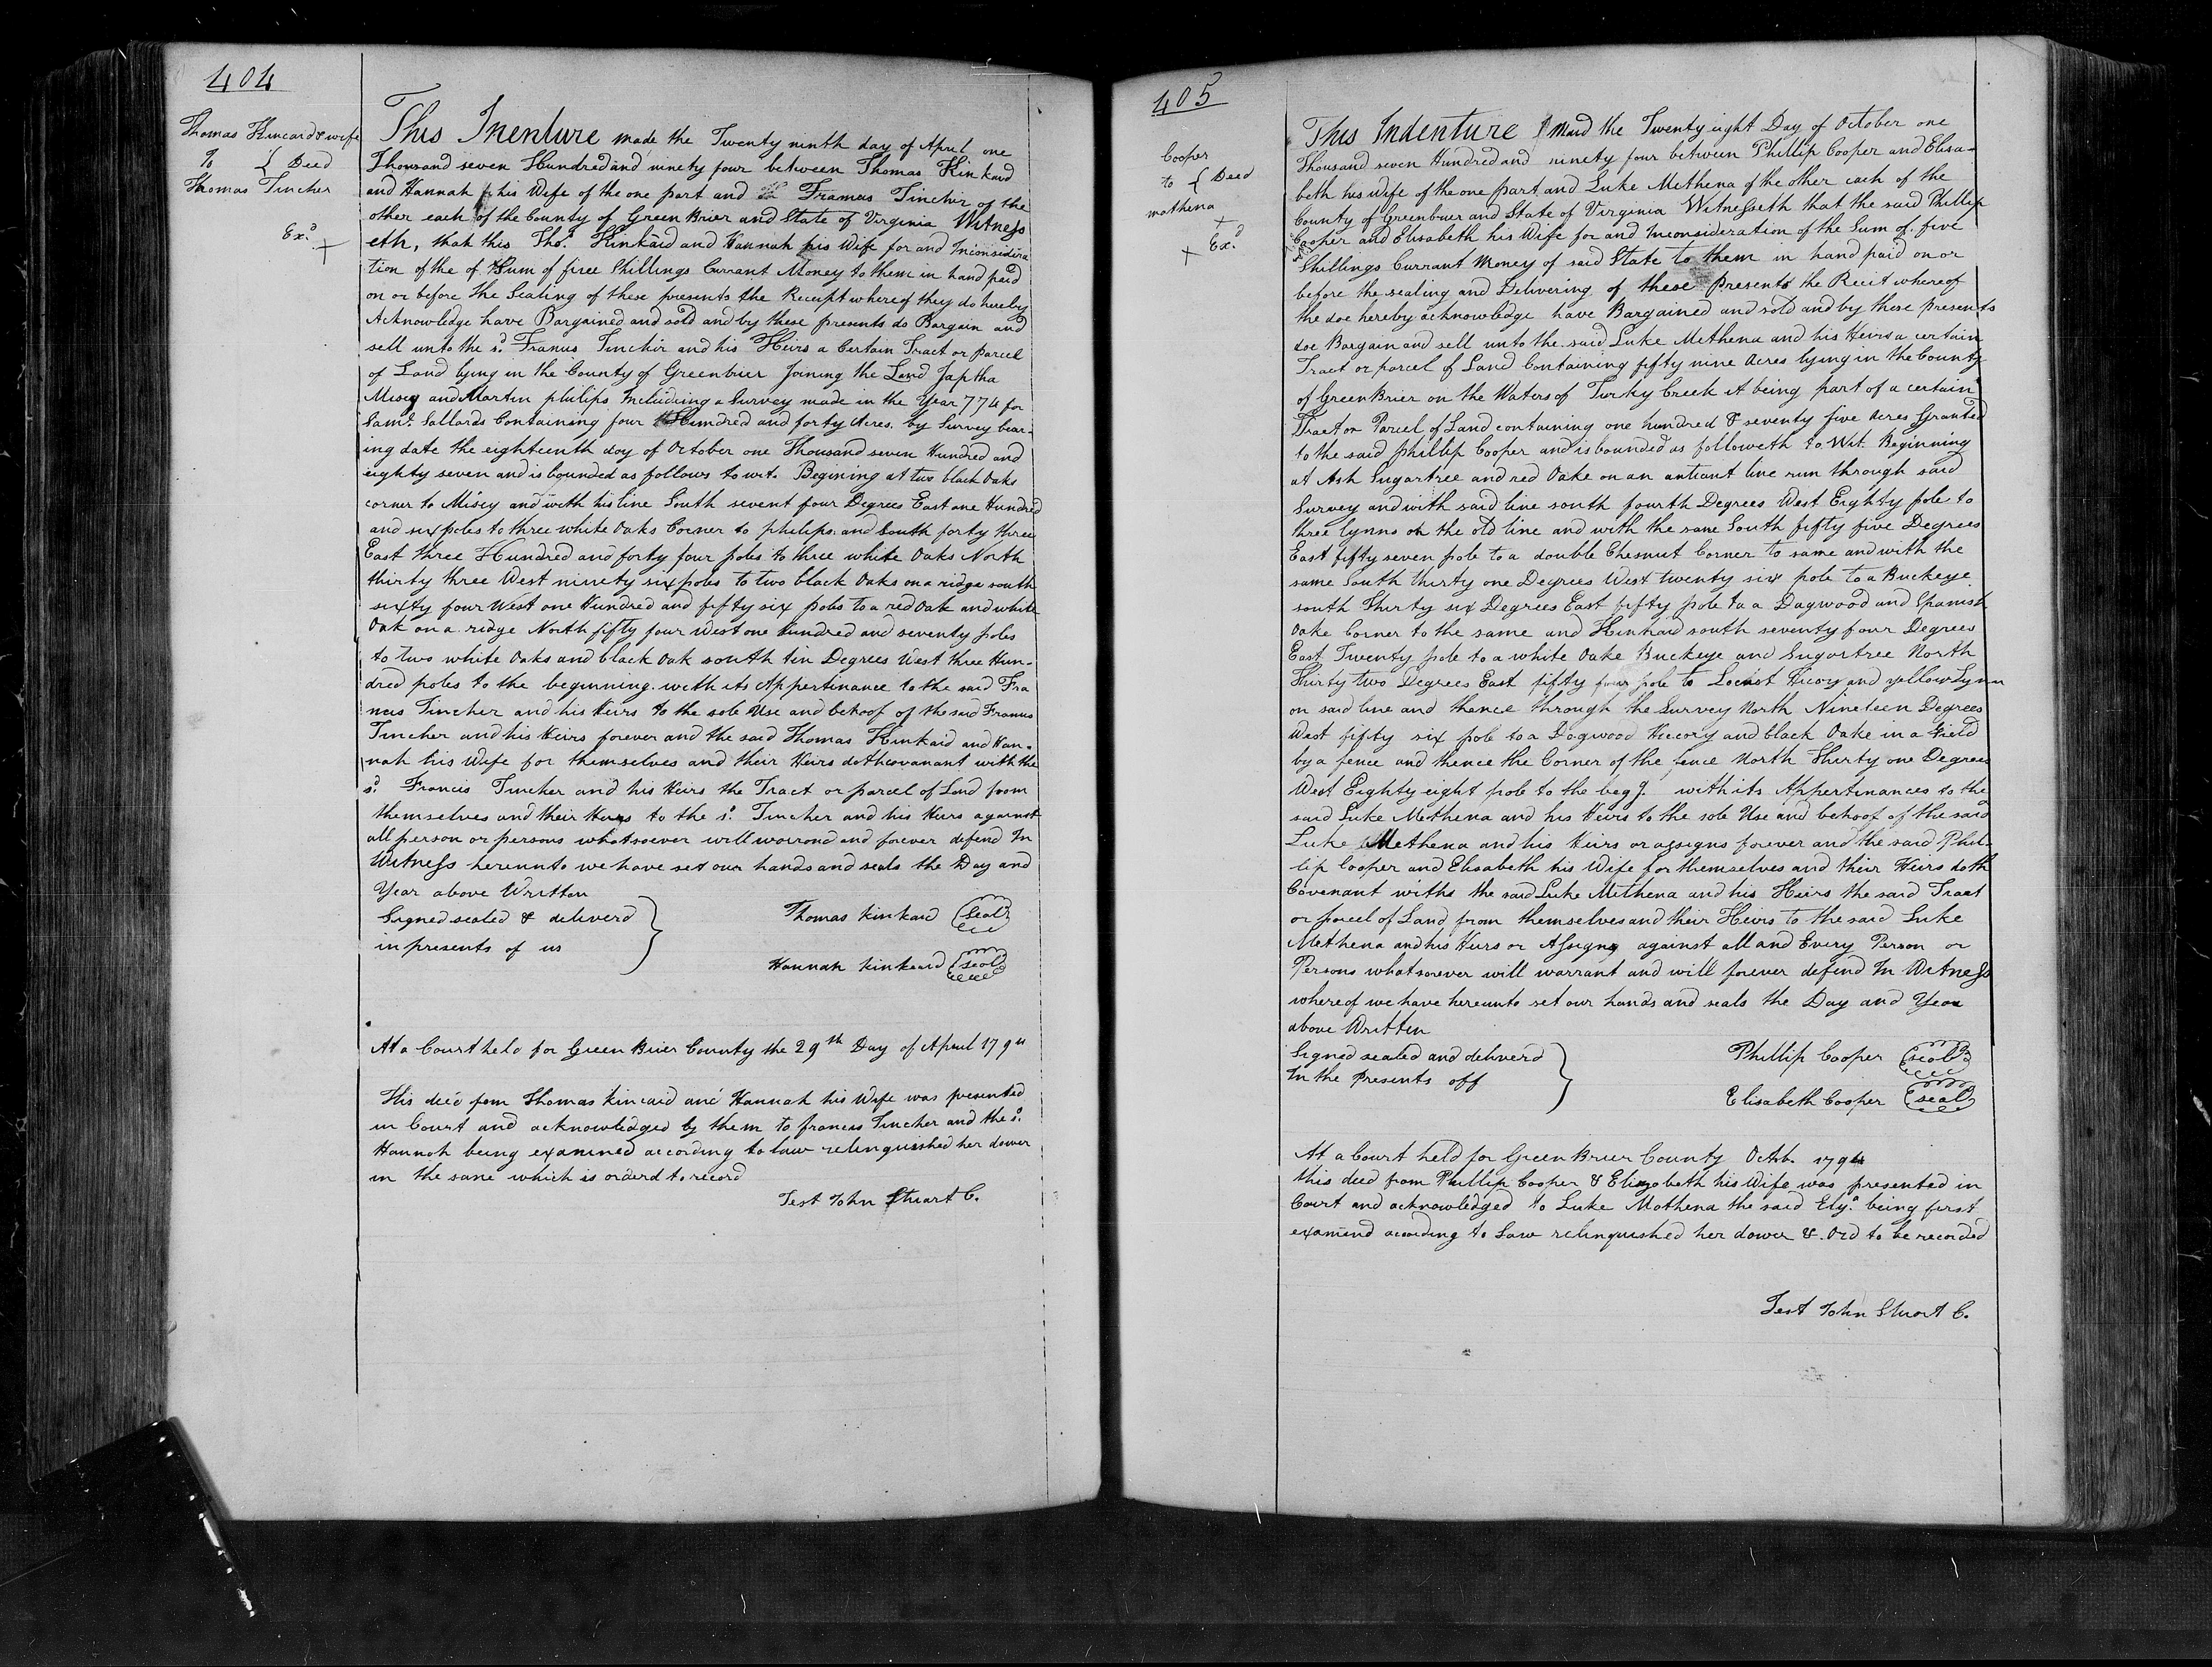 404
Thomas Kincaid & wife
To { Deed
Thomas Tincher
Ex.d
+
This Inenture made the Twenty ninth day of April one
Thousand seven Hundred and ninety four between Thomas Kinkaid
and Hannah his Wife of the one part and Framus Tinchir of the
other each of the County of Green Brier and State of Virginia Witness
eth, that this Tho.s Kinkaid and Hannah his Wife for and Inconsidera
tion of the of Sum of five Shillings Currant Money to them in hand paid
on or before the Sealing of these presents the Receipt whereof they do hereby
Acknowledge have Bargained and sold and by these presents do Bargain and
sell unto the s.d Franus Tinchir and his Heirs a Certain Tract or parcel
of Land lying in the County of Greenbrier Joining the Land Japtha
Misey and Martin philips Including a Survey made in the Year 774 for
Sam.l Sallards Containing four Hundred and forty Acres. by Survey bear-
ing date the eighteenth day of October one Thousand seven Hundred and
eighty seven and is bounded as follows to wit. Begining at two black Oaks
corner to Misey and with his line South sevent four Degrees East one Hundred
and six poles to three white Oaks Corner to philips. and South forty three
East three Hundred and forty four poles to three white Oaks North
thirty three West ninety six poles to two black Oaks on a ridge south
sixty four West one Hundred and fifty six poles to a red Oak and white
Oak on a ridge North fifty four West one hundred and seventy poles
to two white Oaks and black Oak south tin Degrees West three Hun-
dred poles to the beginning. with its Appertinance to the said Fra
ncis Tincher and his Heirs to the sole Use and behoof of the said Framus
Tincher and his Heirs forever and the said Thomas Kinkaid and Han-
nah his Wife for themselves and their Heirs doth covanant with the
s.d Francis Tincher and his Heirs the Tract or parcel of Land from
themselves and their Heirs to the s.d Tincher and his Heirs against
all person or persons whatsoever will warrond and forever defend In
Witness hereunto we have set our hands and seals the Day and
Year above Written
Signed sealed & deliverd
in presents of us
Thomas Kinkaid (Seal)
Hannah Kinkaid (seal)
At a Court held for Green Brier County the 29th Day of April 1794
This deed from Thomas Kincaid and Hannah his Wife was presented
in Court and acknowledged by them to francis Tincher and the s.d
Hannah being examined according to law relinquished her dower
in the same which is orderd to record
Test John Stuart C.
405
Cooper
to { Deed
mathena
+
+ Ex.d
This Indenture Maid the Twenty eight Day of October one
Thousand seven Hundred and ninety four between Phillip Cooper and Elisa-
beth his Wife of the one part and Luke Methena of the other each of the
County of Greenbrier and State of Virginia Witnesseth that the said Phillip
Cooper and Elisabeth his Wife for and Inconsideration of the Sum of. five
Shillings Currant Money of said State to them in hand paid on or
before the sealing and Delivering of these Presents the Reciit whereof
the doe hereby acknowledge have Bargained and sold and by these presents
doe Bargain and sell unto the said Luke Methena and his Heirs a certain
Tract or parcel of Land Containing fifty nine Acres lying in the County
of Green Brier on the Waters of Turky Creek it being part of a certain
Tract or Parcel of Land containing one hundred & seventy five Acres Granted
to the said phillip Cooper and is bounded as followeth to Wit. Beginning
at Ash Sugartree and red Oake on an antiant line run through said
Survey and with said line south fourth Degrees West Eighty pole to
three lynns on the old line and with the same South fifty five Degrees
East fifty seven pole to a double Chesnut Corner to same and with the
same South thirty one Degrees West twenty six pole to a Buckeye
south Thirty six Degrees East fifty pole to a Dagwood and Spanish
Oake Corner to the same and Kinkaid south seventy four Degrees
East Twenty pole to a white Oake Buckeye and Sugartree North
Thirty two Degrees East fifty four pole to Locust Hicory and yellow Lynn
on said line and thence through the Survey North Nineteen Degrees
West fifty six pole to a Dogwood Hiccory and black Oake in a Field
by a fence and thence the Corner of the fence North Thirty one Degrees
West Eighty eight pole to the beg.g with its Appertinances to the
said Luke Methena and his Heirs to the sole Use and behoof of the said
Luke Methena and his Heirs or assigns forever and the said Phil-
lip Cooper and Elisabeth his Wife for themselves and their Heirs doth
Covenant withs the said Luke Methena and his Heirs the said Tract
or parcel of Land from themselves and their Heirs to the said Luke
Methena and his Heirs or Assigns against all and Every Person or
Persons whatsoever will warrant and will forever defend In Witness
whereof we have hereunto set our hands and seals the Day and Year
above Written
Signed sealed and deliverd
In the Presents off
Phillip Cooper (seal)
Elisabeth Cooper (seal)
At a Court held for Green Brier County Octb. 1794
this deed from Phillip Cooper & Elizabeth his Wife was presented in
Court and acknowledged to Luke Mothena the said Ely.a being first
examend acording to Law relinquished her dower &. Ord to be recorded
Test John Stuart C.